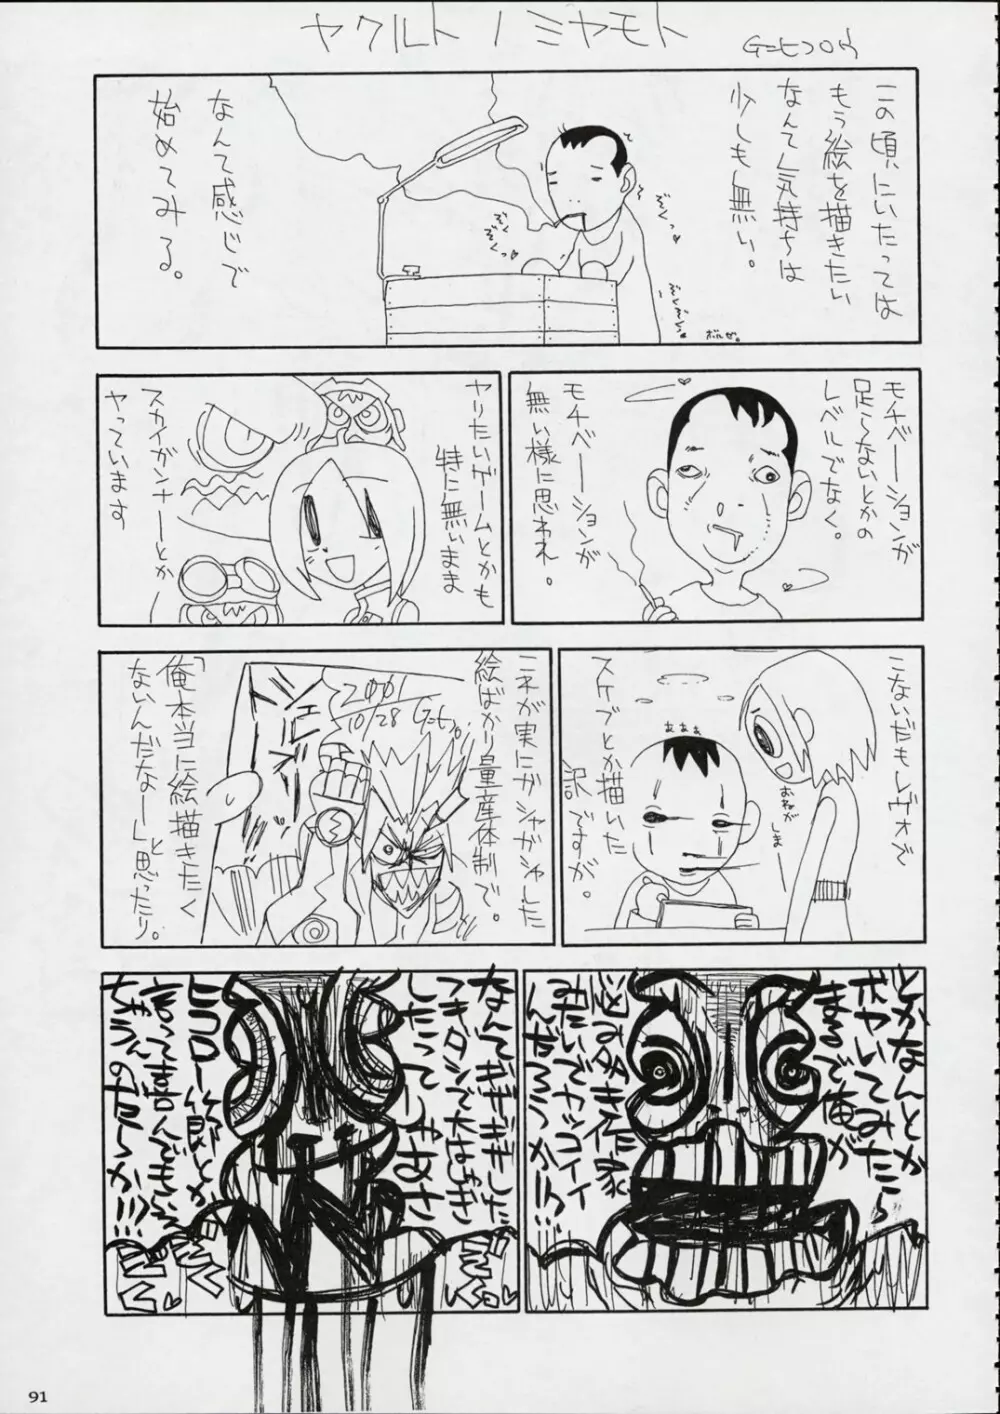 ヤクルトノミヤモト
この頃にいたっては
もう絵を描きたい
なんて気持ちは
少しも無い。
なんて感じで
始めてみる。
ぞくっ
ぞく
ぞくっ
ボルゼ。
モチベーションが
足らないとかの
レベルでなく。
モチベーションが
無い様に思われ。
ヤりたいゲームとかも
特に無いまま
スカイガンナーとか
ヤっています
こないだもレヴォで
スケブとか描いた
訳ですが。
あああ
おねが
しまーー
これが実にガシャガシャした
絵ばかり量産体制で。
2001
10/28
「俺本当に絵描きたく
ないんだなー」と
思ったり。
とかなんとか
ボヤいてみたら
まるで俺が
悩み多き作家
みたいでカッコイイ
んだろうか!!!
なんてギギギした
つきダシで大はしゃぎ
したってしゃあさ
ヒコロー節とか
言って喜んでもらえ
ちゃうんのだろうか!!!
91